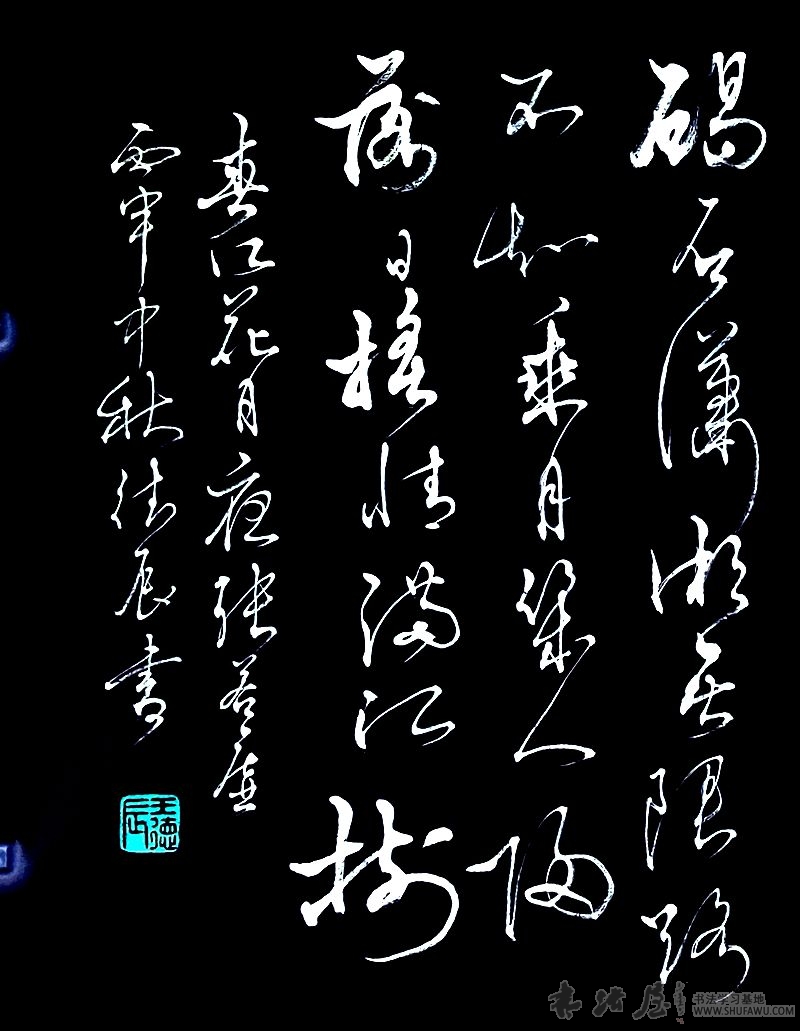 碣石瀟湘无限路
不知乘月幾人歸
落日搖情滿江樹
春江花月夜張若虛
丙申中秋德辰書
王德辰
書法屋
书法学习基地
WWW.SHUFAWU.COM